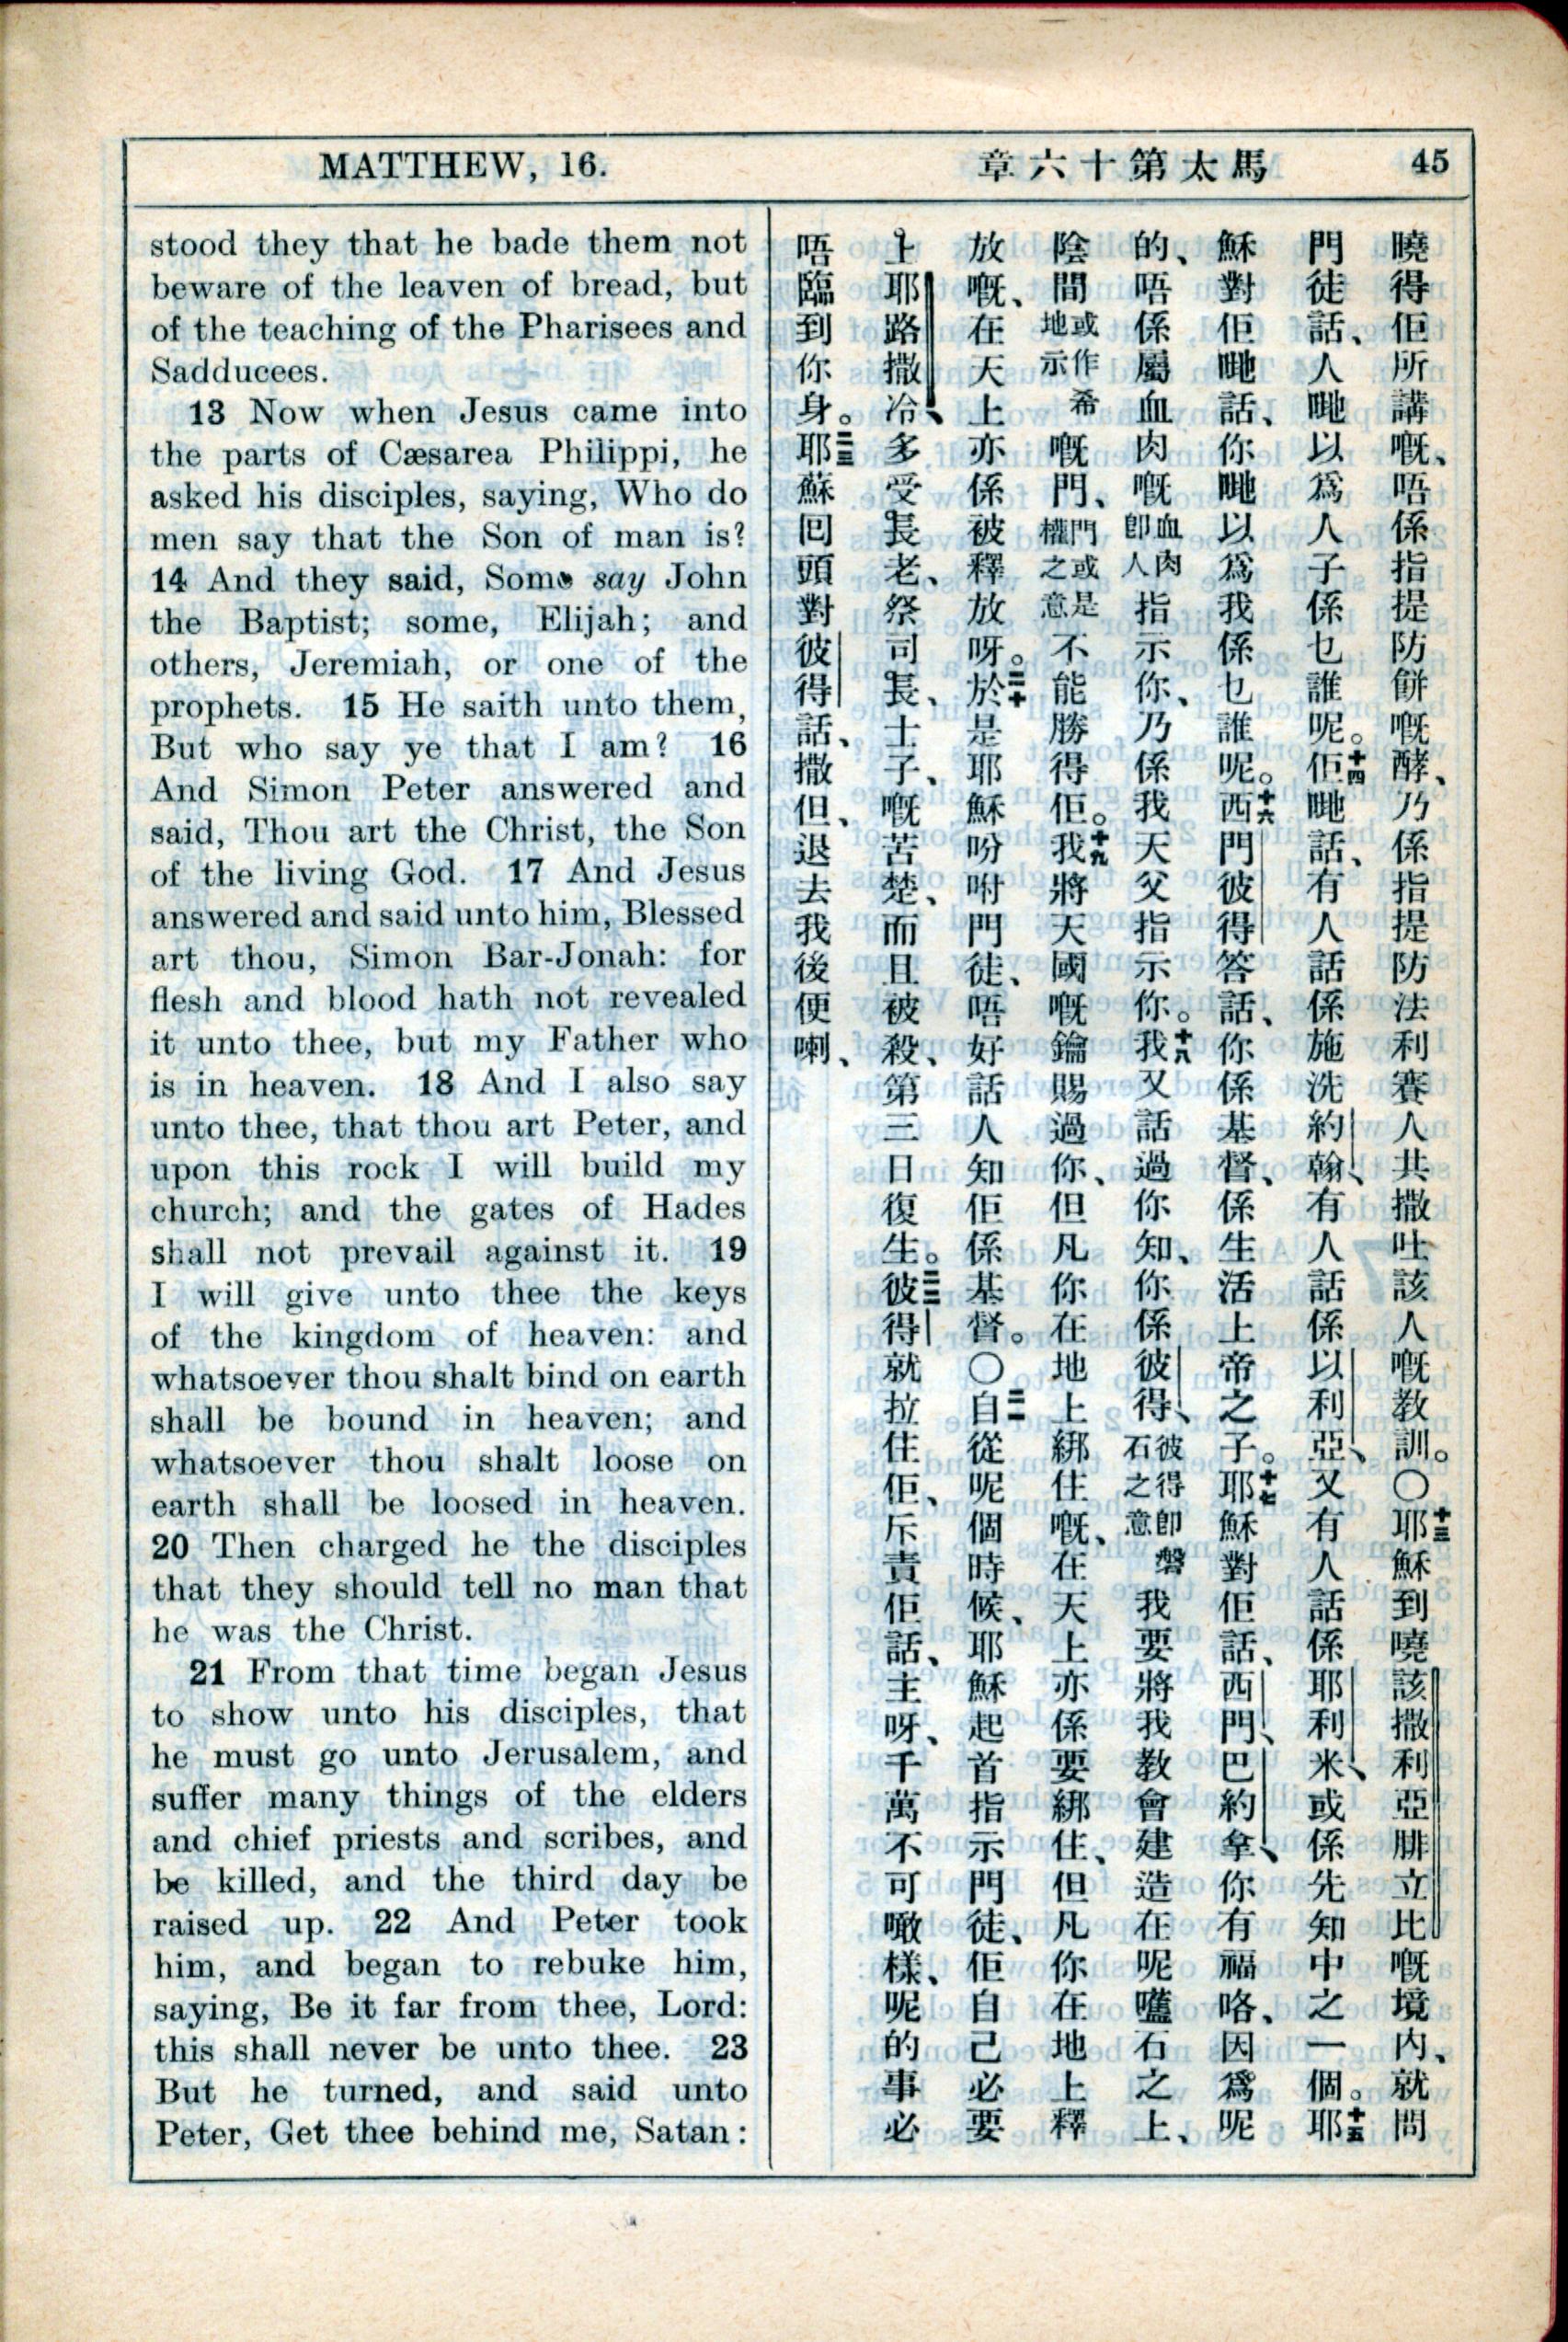 MATTHEW, 16.
章六十第太馬
45
stood they that he bade them not
beware of the leaven of bread, but
of the teaching of the Pharisees and
Sadducees.
13 Now when Jesus came into
the parts of Cæsarea Philippi, he
asked his disciples, saying, Who do
men say that the Son of man is?
14 And they said, Some say John
the Baptist; some, Elijah; and
others, Jeremiah, or one of the
prophets. 15 He saith unto them,
But who say ye that I am? 16
And Simon Peter answered and
said, Thou art the Christ, the Son
of the living God. 17 And Jesus
answered and said unto him, Blessed
art thou, Simon Bar-Jonah: for
flesh and blood hath not revealed
it unto thee, but my Father who
is in heaven. 18 And I also say
unto thee, that thou art Peter, and
upon this rock I will build my
church; and the gates of Hades
shall not prevail against it. 19
I will give unto thee the keys
of the kingdom of heaven: and
whatsoever thou shalt bind on earth
shall be bound in heaven; and
whatsoever thou shalt loose on
earth shall be loosed in heaven.
20 Then charged he the disciples
that they should tell no man that
he was the Christ.
21 From that time began Jesus
to show unto his disciples, that
he must go unto Jerusalem, and
suffer many things of the elders
and chief priests and scribes, and
be killed, and the third day be
raised up. 22 And Peter took
him, and began to rebuke him,
saying, Be it far from thee, Lord:
this shall never be unto thee. 23
But he turned, and said unto
Peter, Get thee behind me, Satan:
曉得佢所講嘅、唔係指提防餅嘅酵、乃係指提防法利賽人共撒吐該人嘅教訓。〇十三耶穌到曉該撒利亞腓立比嘅境內、就問
門徒話、人哋以爲人子係乜誰呢。十四佢哋話、有人話係施洗約翰、有人話係以利亞、又有人話係耶利米、或係先知中之一個。十五耶
穌對佢哋話、你哋以爲我係乜誰呢。十六西門彼得答話、你係基督、係生活上帝之子。十七耶穌對佢話、西門、巴約拿、你有福咯、因爲呢
的、唔係屬血肉嘅血肉卽人指示你、乃係我天父指示你。十八我又話過你知、你係彼得、彼得卽磐石之意我要將我教會建造在呢㘔石之上、
陰間或作希地示嘅門、門或是權之意不能勝得佢。十九我將天國嘅鑰賜過你、但凡你在地上綁住嘅、在天上亦係要綁住、但凡你在地上釋
放嘅、在天上亦係被釋放呀。二十於是耶穌吩咐門徒、唔好話人知佢係基督。〇二一自從呢個時候、耶穌起首指示門徒、佢自己必要
上耶路撒冷、多受長老、祭司長、士子、嘅苦楚、而且被殺、第三日復生。二二彼得就拉住佢、斥責佢話、主呀、千萬不可噉樣、呢的事必
唔臨到你身。二三耶蘇回頭對彼得話、撒但、退去我後便喇、